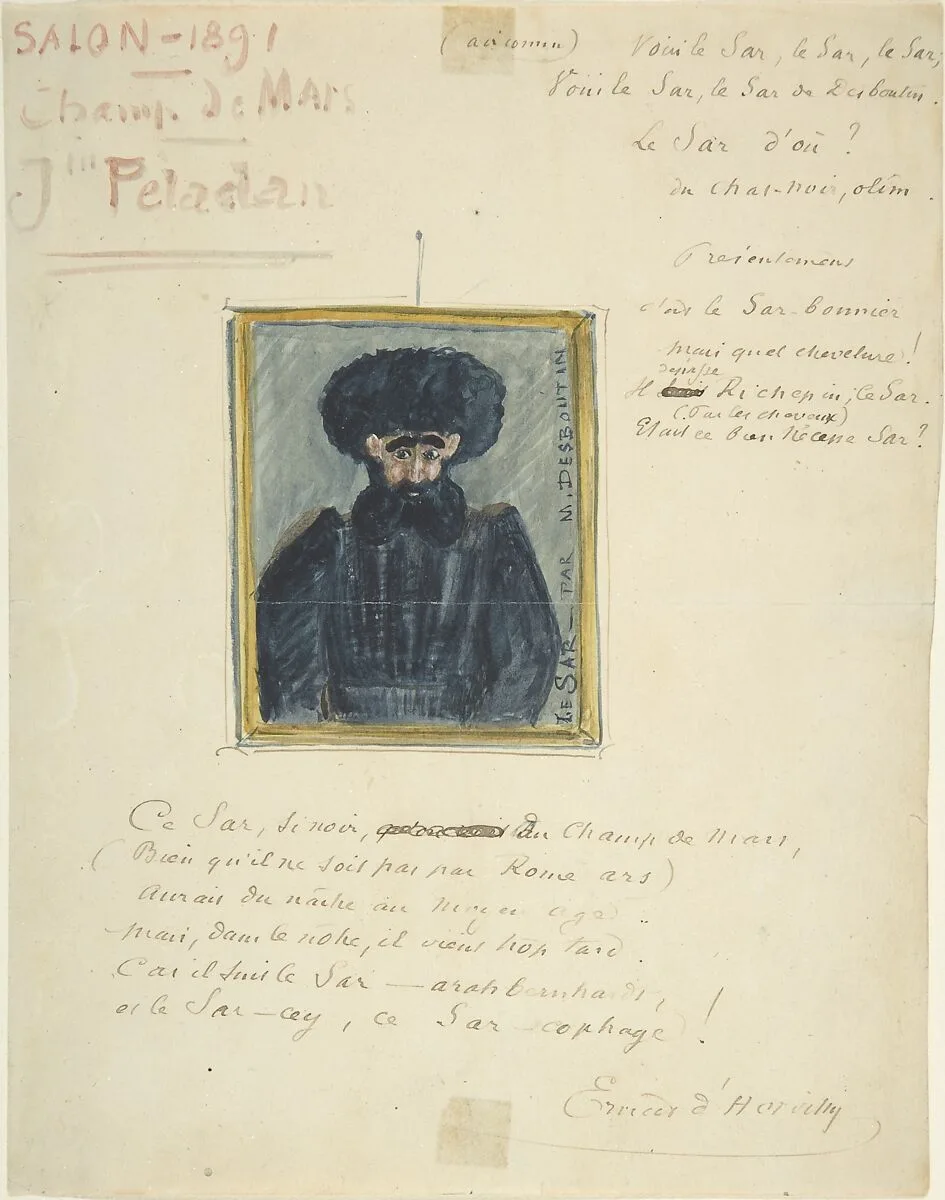 SALON - 1891
Champ de MArs
Jin Peladan
(air connu)
Voici le Sar, le Sar, le Sar,
Voici le Sar, le Sar de Desboutin.
Le Sar d'où ?
du chat-noir, olim.
Présentement
c'est le Sar-bonnier
mais quel chevelure !
dépasse
Il Richepin, le Sar.
(Par les cheveux)
Etait ce bien Nécesse Sar ?
LE SAR — PAR M. DESBOUTIN
Ce Sar, si noir, du Champ de Mars,
(Bien qu'il ne soit pas par Rome ars)
Aurait du naître au moyen age ..
Mais, dans le nôtre, il vient trop tard.
Car il suit le Sar — arah bernhardt,
et le Sar-cey, ce Sar-cophage !
Ernest d'Hervilly